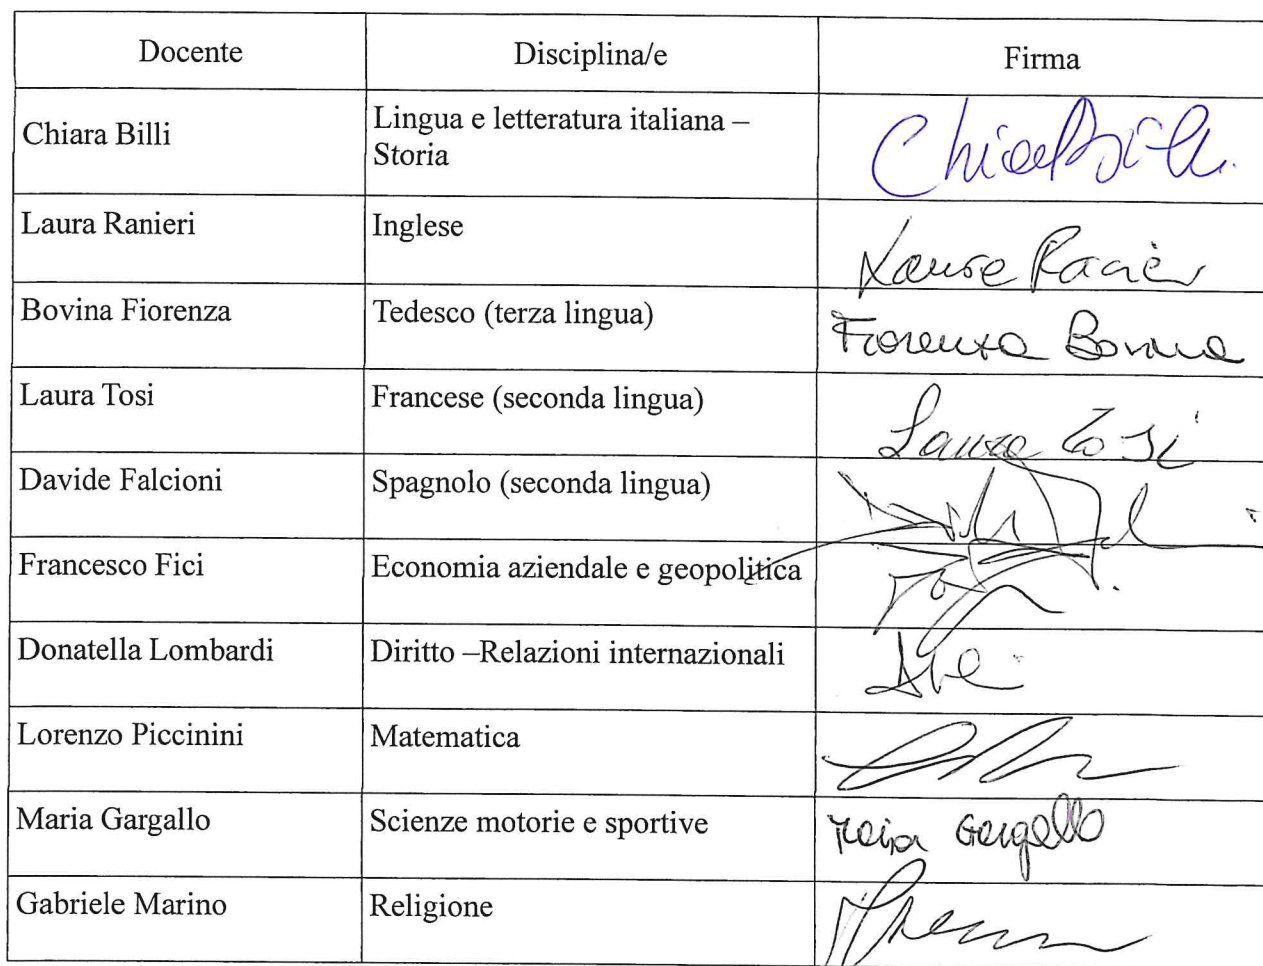 Docente Disciplina/e Firma
Chiara Billi Lingua e letteratura italiana –
Storia
Laura Ranieri Inglese
Bovina Fiorenza Tedesco (terza lingua) Fiorenza Bovina
Laura Tosi Francese (seconda lingua) Laura Tosi
Davide Falcioni Spagnolo (seconda lingua)
Francesco Fici Economia aziendale e geopolitica
Donatella Lombardi Diritto –Relazioni internazionali
Lorenzo Piccinini Matematica
Maria Gargallo Scienze motorie e sportive Maria Gargallo
Gabriele Marino Religione